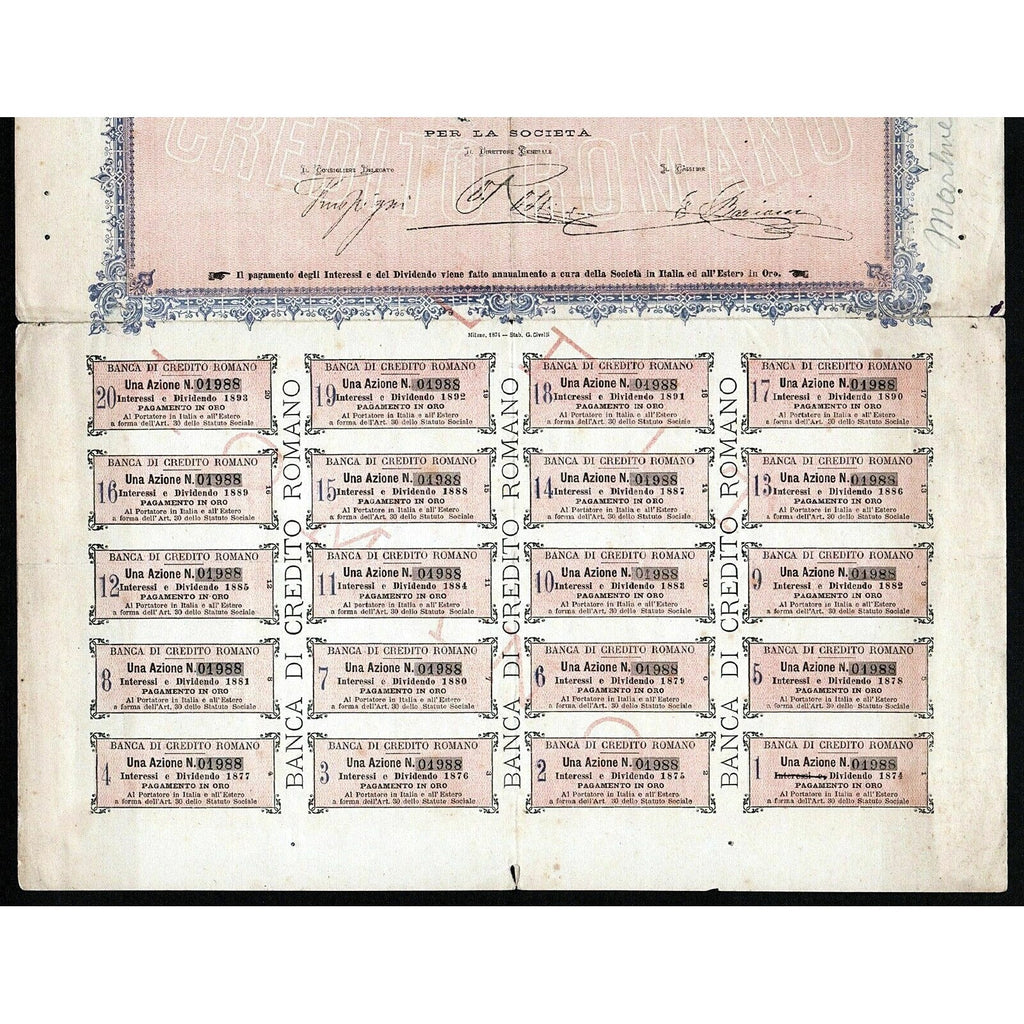 CREDITO ROMANO
PER LA SOCIETÀ
IL DIRETTORE GENERALE
IL CONSIGLIERE DELEGATO
IL CASSIERE
E. Bariani
Il pagamento degli Interessi e del Dividendo viene fatto annualmente a cura della Società in Italia ed all'Estero in Oro.
Milano, 1874 — Stab. G. Civelli
BANCA DI CREDITO ROMANO
Una Azione N. 01988
20 Interessi e Dividendo 1893 20
PAGAMENTO IN ORO
Al Portatore in Italia e all'Estero
a forma dell'Art. 30 dello Statuto Sociale
BANCA DI CREDITO ROMANO
Una Azione N. 01988
19 Interessi e Dividendo 1892 19
PAGAMENTO IN ORO
Al Portatore in Italia e all'Estero
a forma dell'Art. 30 dello Statuto Sociale
BANCA DI CREDITO ROMANO
Una Azione N. 01988
18 Interessi e Dividendo 1891 18
PAGAMENTO IN ORO
Al Portatore in Italia e all'Estero
a forma dell'Art. 30 dello Statuto Sociale
BANCA DI CREDITO ROMANO
Una Azione N. 01988
17 Interessi e Dividendo 1890 17
PAGAMENTO IN ORO
Al Portatore in Italia e all'Estero
a forma dell'Art. 30 dello Statuto Sociale
BANCA DI CREDITO ROMANO
Una Azione N. 01988
16 Interessi e Dividendo 1889 16
PAGAMENTO IN ORO
Al Portatore in Italia e all'Estero
a forma dell'Art. 30 dello Statuto Sociale
BANCA DI CREDITO ROMANO
Una Azione N. 01988
15 Interessi e Dividendo 1888 15
PAGAMENTO IN ORO
Al Portatore in Italia e all'Estero
a forma dell'Art. 30 dello Statuto Sociale
BANCA DI CREDITO ROMANO
Una Azione N. 01988
14 Interessi e Dividendo 1887 14
PAGAMENTO IN ORO
Al Portatore in Italia e all'Estero
a forma dell'Art. 30 dello Statuto Sociale
BANCA DI CREDITO ROMANO
Una Azione N. 01988
13 Interessi e Dividendo 1886 13
PAGAMENTO IN ORO
Al Portatore in Italia e all'Estero
a forma dell'Art. 30 dello Statuto Sociale
BANCA DI CREDITO ROMANO
Una Azione N. 01988
12 Interessi e Dividendo 1885 12
PAGAMENTO IN ORO
Al Portatore in Italia e all'Estero
a forma dell'Art. 30 dello Statuto Sociale
BANCA DI CREDITO ROMANO
Una Azione N. 01988
11 Interessi e Dividendo 1884 11
PAGAMENTO IN ORO
Al Portatore in Italia e all'Estero
a forma dell'Art. 30 dello Statuto Sociale
BANCA DI CREDITO ROMANO
Una Azione N. 01988
10 Interessi e Dividendo 1883 10
PAGAMENTO IN ORO
Al Portatore in Italia e all'Estero
a forma dell'Art. 30 dello Statuto Sociale
BANCA DI CREDITO ROMANO
Una Azione N. 01988
9 Interessi e Dividendo 1882 9
PAGAMENTO IN ORO
Al Portatore in Italia e all'Estero
a forma dell'Art. 30 dello Statuto Sociale
BANCA DI CREDITO ROMANO
Una Azione N. 01988
8 Interessi e Dividendo 1881 8
PAGAMENTO IN ORO
Al Portatore in Italia e all'Estero
a forma dell'Art. 30 dello Statuto Sociale
BANCA DI CREDITO ROMANO
Una Azione N. 01988
7 Interessi e Dividendo 1880 7
PAGAMENTO IN ORO
Al Portatore in Italia e all'Estero
a forma dell'Art. 30 dello Statuto Sociale
BANCA DI CREDITO ROMANO
Una Azione N. 01988
6 Interessi e Dividendo 1879 6
PAGAMENTO IN ORO
Al Portatore in Italia e all'Estero
a forma dell'Art. 30 dello Statuto Sociale
BANCA DI CREDITO ROMANO
Una Azione N. 01988
5 Interessi e Dividendo 1878 5
PAGAMENTO IN ORO
Al Portatore in Italia e all'Estero
a forma dell'Art. 30 dello Statuto Sociale
BANCA DI CREDITO ROMANO
Una Azione N. 01988
4 Interessi e Dividendo 1877 4
PAGAMENTO IN ORO
Al Portatore in Italia e all'Estero
a forma dell'Art. 30 dello Statuto Sociale
BANCA DI CREDITO ROMANO
Una Azione N. 01988
3 Interessi e Dividendo 1876 3
PAGAMENTO IN ORO
Al Portatore in Italia e all'Estero
a forma dell'Art. 30 dello Statuto Sociale
BANCA DI CREDITO ROMANO
Una Azione N. 01988
2 Interessi e Dividendo 1875 2
PAGAMENTO IN ORO
Al Portatore in Italia e all'Estero
a forma dell'Art. 30 dello Statuto Sociale
BANCA DI CREDITO ROMANO
Una Azione N. 01988
1 Interessi e Dividendo 1874 1
PAGAMENTO IN ORO
Al Portatore in Italia e all'Estero
a forma dell'Art. 30 dello Statuto Sociale
BANCA DI CREDITO ROMANO
BANCA DI CREDITO ROMANO
BANCA DI CREDITO ROMANO